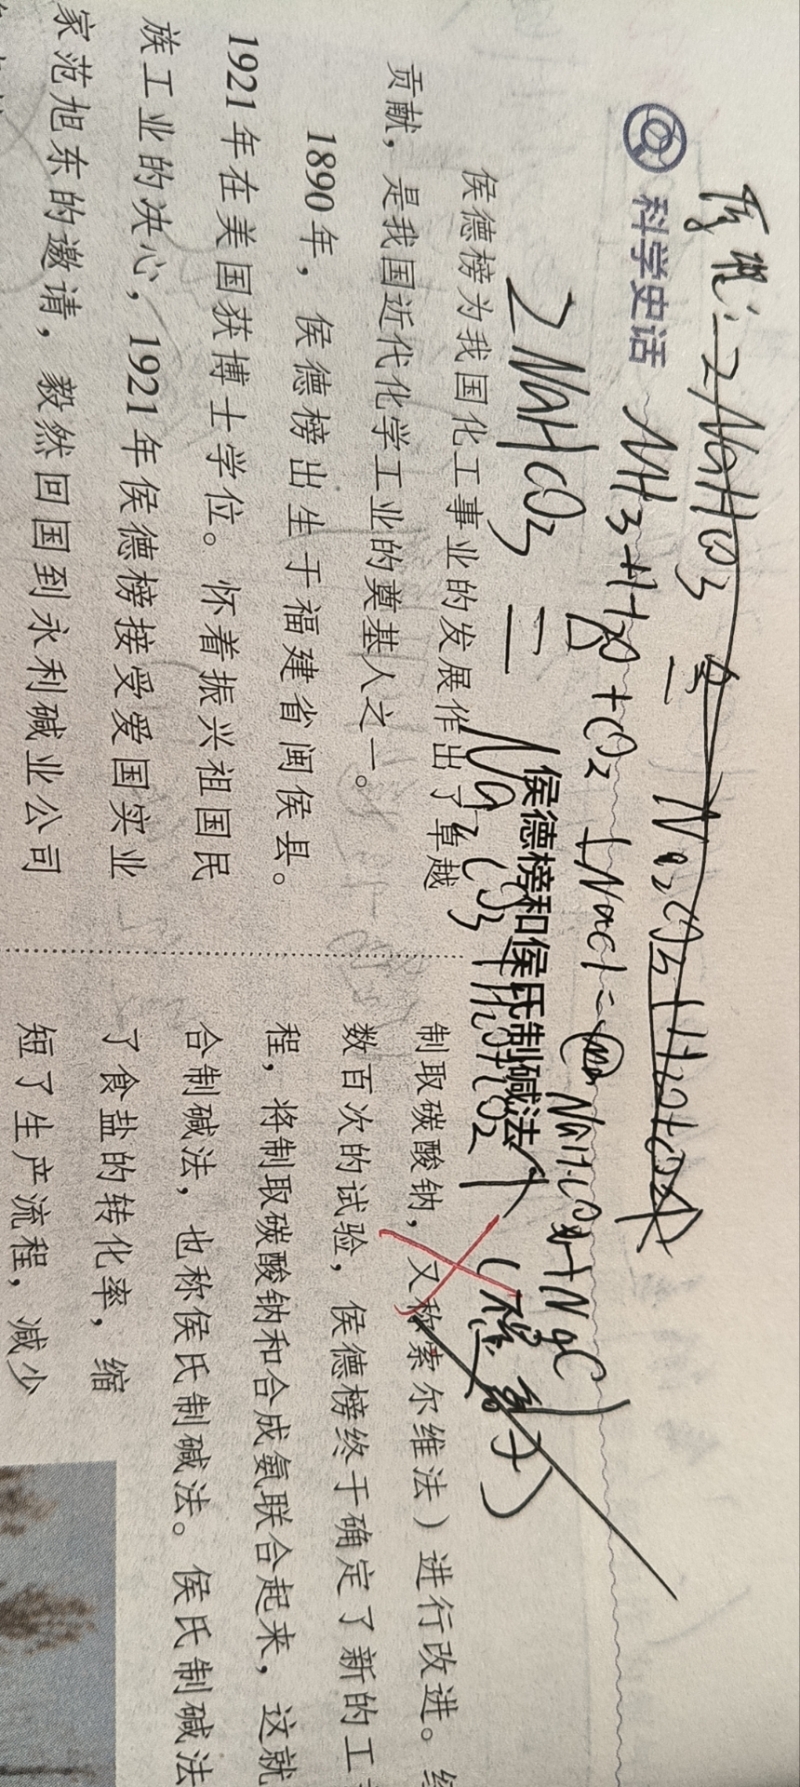 原理：2NaHCO3 = Na2CO3+H2O+CO2↑
科学史话
NH3+H2O+CO2+NaCl=NaHCO3+NH4Cl
侯德榜和侯氏制碱法
2NaHCO3 =△ Na2CO3+H2O+CO2↑
侯德榜为我国化工事业的发展作出了卓越
贡献，是我国近代化学工业的奠基人之一。
1890年，侯德榜出生于福建省闽侯县。
1921年在美国获博士学位。怀着振兴祖国民
族工业的决心，1921年侯德榜接受爱国实业
家范旭东的邀请，毅然回国到永利碱业公司
制取碳酸钠，又称索尔维法）进行改进。
数百次的试验，侯德榜终于确定了新的工
程，将制取碳酸钠和合成氨联合起来，这就
合制碱法，也称侯氏制碱法。侯氏制碱法
了食盐的转化率，缩
短了生产流程，减少